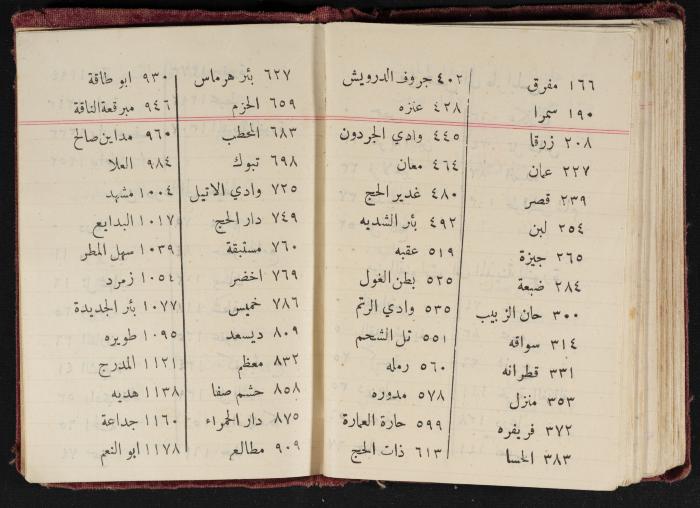 ١٦٦ مفرق
١٩٠ سمرا
٢٠٨ زرقا
٢٢٧ عمان
٢٣٩ قصر
٢٥٤ لبن
٢٦٥ جيزة
٢٨٤ ضبعة
٣٠٠ خان الزبيب
٣١٤ سواقه
٣٣١ قطرانه
٣٥٣ منزل
٣٧٢ فريفره
٣٨٣ الحسا
٤٠٢ جروف الدرويش
٤٢٨ عنزه
٤٤٥ وادي الجردون
٤٦٤ معان
٤٨٠ غدير الحج
٤٩٢ بئر الشديه
٥١٩ عقبه
٥٢٥ بطن الغول
٥٣٥ وادي الرتم
٥٥١ تل الشحم
٥٦٠ رمله
٥٧٨ مدوره
٥٩٩ حارة العمارة
٦١٣ ذات الحج
٦٢٧ بئر هرماس
٦٥٩ الحزم
٦٨٣ المحطب
٦٩٨ تبوك
٧٢٥ وادي الاتيل
٧٤٩ دار الحج
٧٦٠ مستبقة
٧٦٩ اخضر
٧٨٦ خميس
٨٠٩ ديسعد
٨٣٢ معظم
٨٥٨ حشم صفا
٨٧٥ دار الحمراء
٩٠٩ مطالع
٩٣٠ ابو طاقة
٩٤٦ مبرقعة الناقة
٩٦٠ مداين صالح
٩٨٤ العلا
١٠٠٤ مشهد
١٠١٧ البدايع
١٠٣٩ سهل المطر
١٠٥٤ زمرد
١٠٧٧ بئر الجديدة
١٠٩٥ طويره
١١٢١ المدرج
١١٣٨ هديه
١١٦٠ جداعة
١١٧٨ ابو النعم